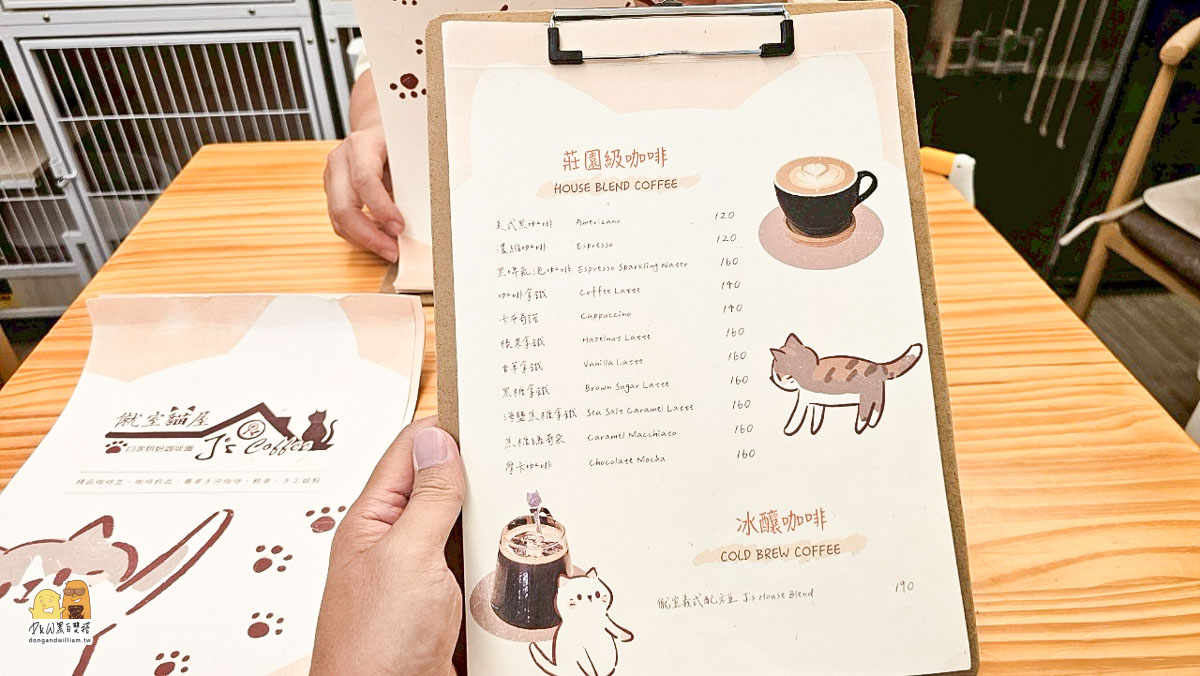 莊園級咖啡
HOUSE BLEND COFFEE
美式黑咖啡 Americano 120
濃縮咖啡 Espresso 120
黑啤氣泡咖啡 Espresso Sparkling Water 160
咖啡拿鐵 Coffee Latte 140
卡布奇諾 Cappuccino 140
榛果拿鐵 Hazelnut Latte 160
香草拿鐵 Vanilla Latte 160
黑糖拿鐵 Brown Sugar Latte 160
海鹽焦糖拿鐵 Sea Salt Caramel Latte 160
焦糖瑪奇朵 Caramel Macchiato 160
摩卡咖啡 Chocolate Mocha 160
冰釀咖啡
COLD BREW COFFEE
僦室義式配方豆 J's House Blend 190
僦室貓屋
J's Coffee
自家烘焙咖啡館
精品咖啡豆、咖啡飲品、專業手沖咖啡、輕食、手工甜點
dongandwilliam.tw